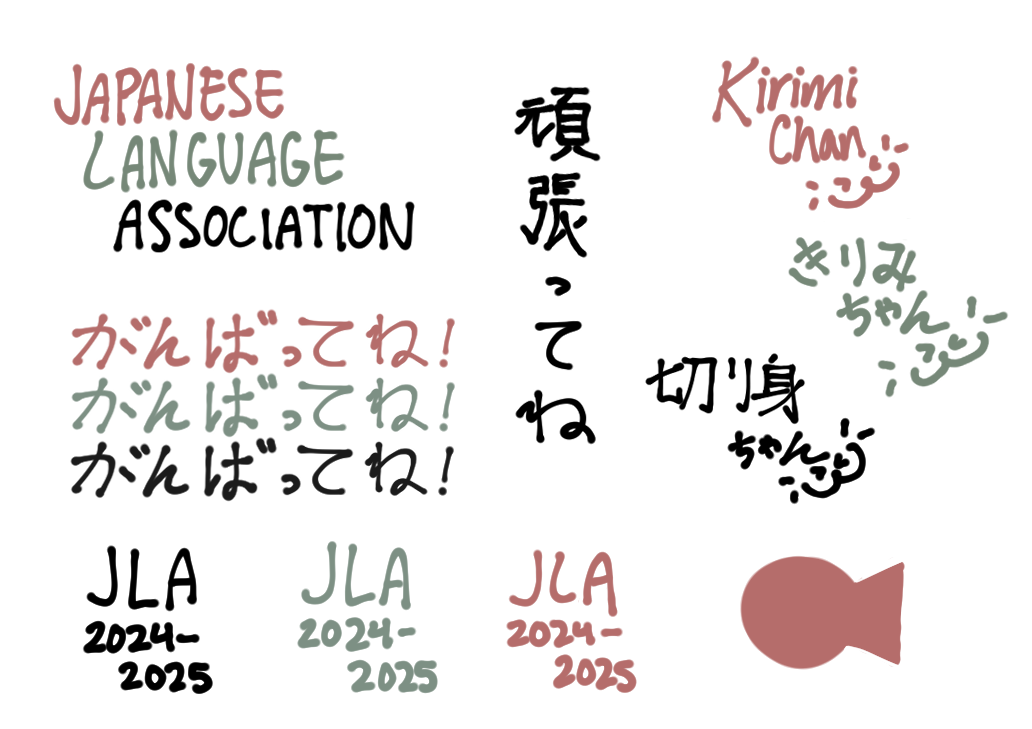 JAPANESE
LANGUAGE
ASSOCIATION
がんばってね!
がんばってね!
がんばってね!
頑張ってね
Kirimi
Chan
きりみ
ちゃん
切り身
ちゃん
JLA
2024-
2025
JLA
2024-
2025
JLA
2024-
2025